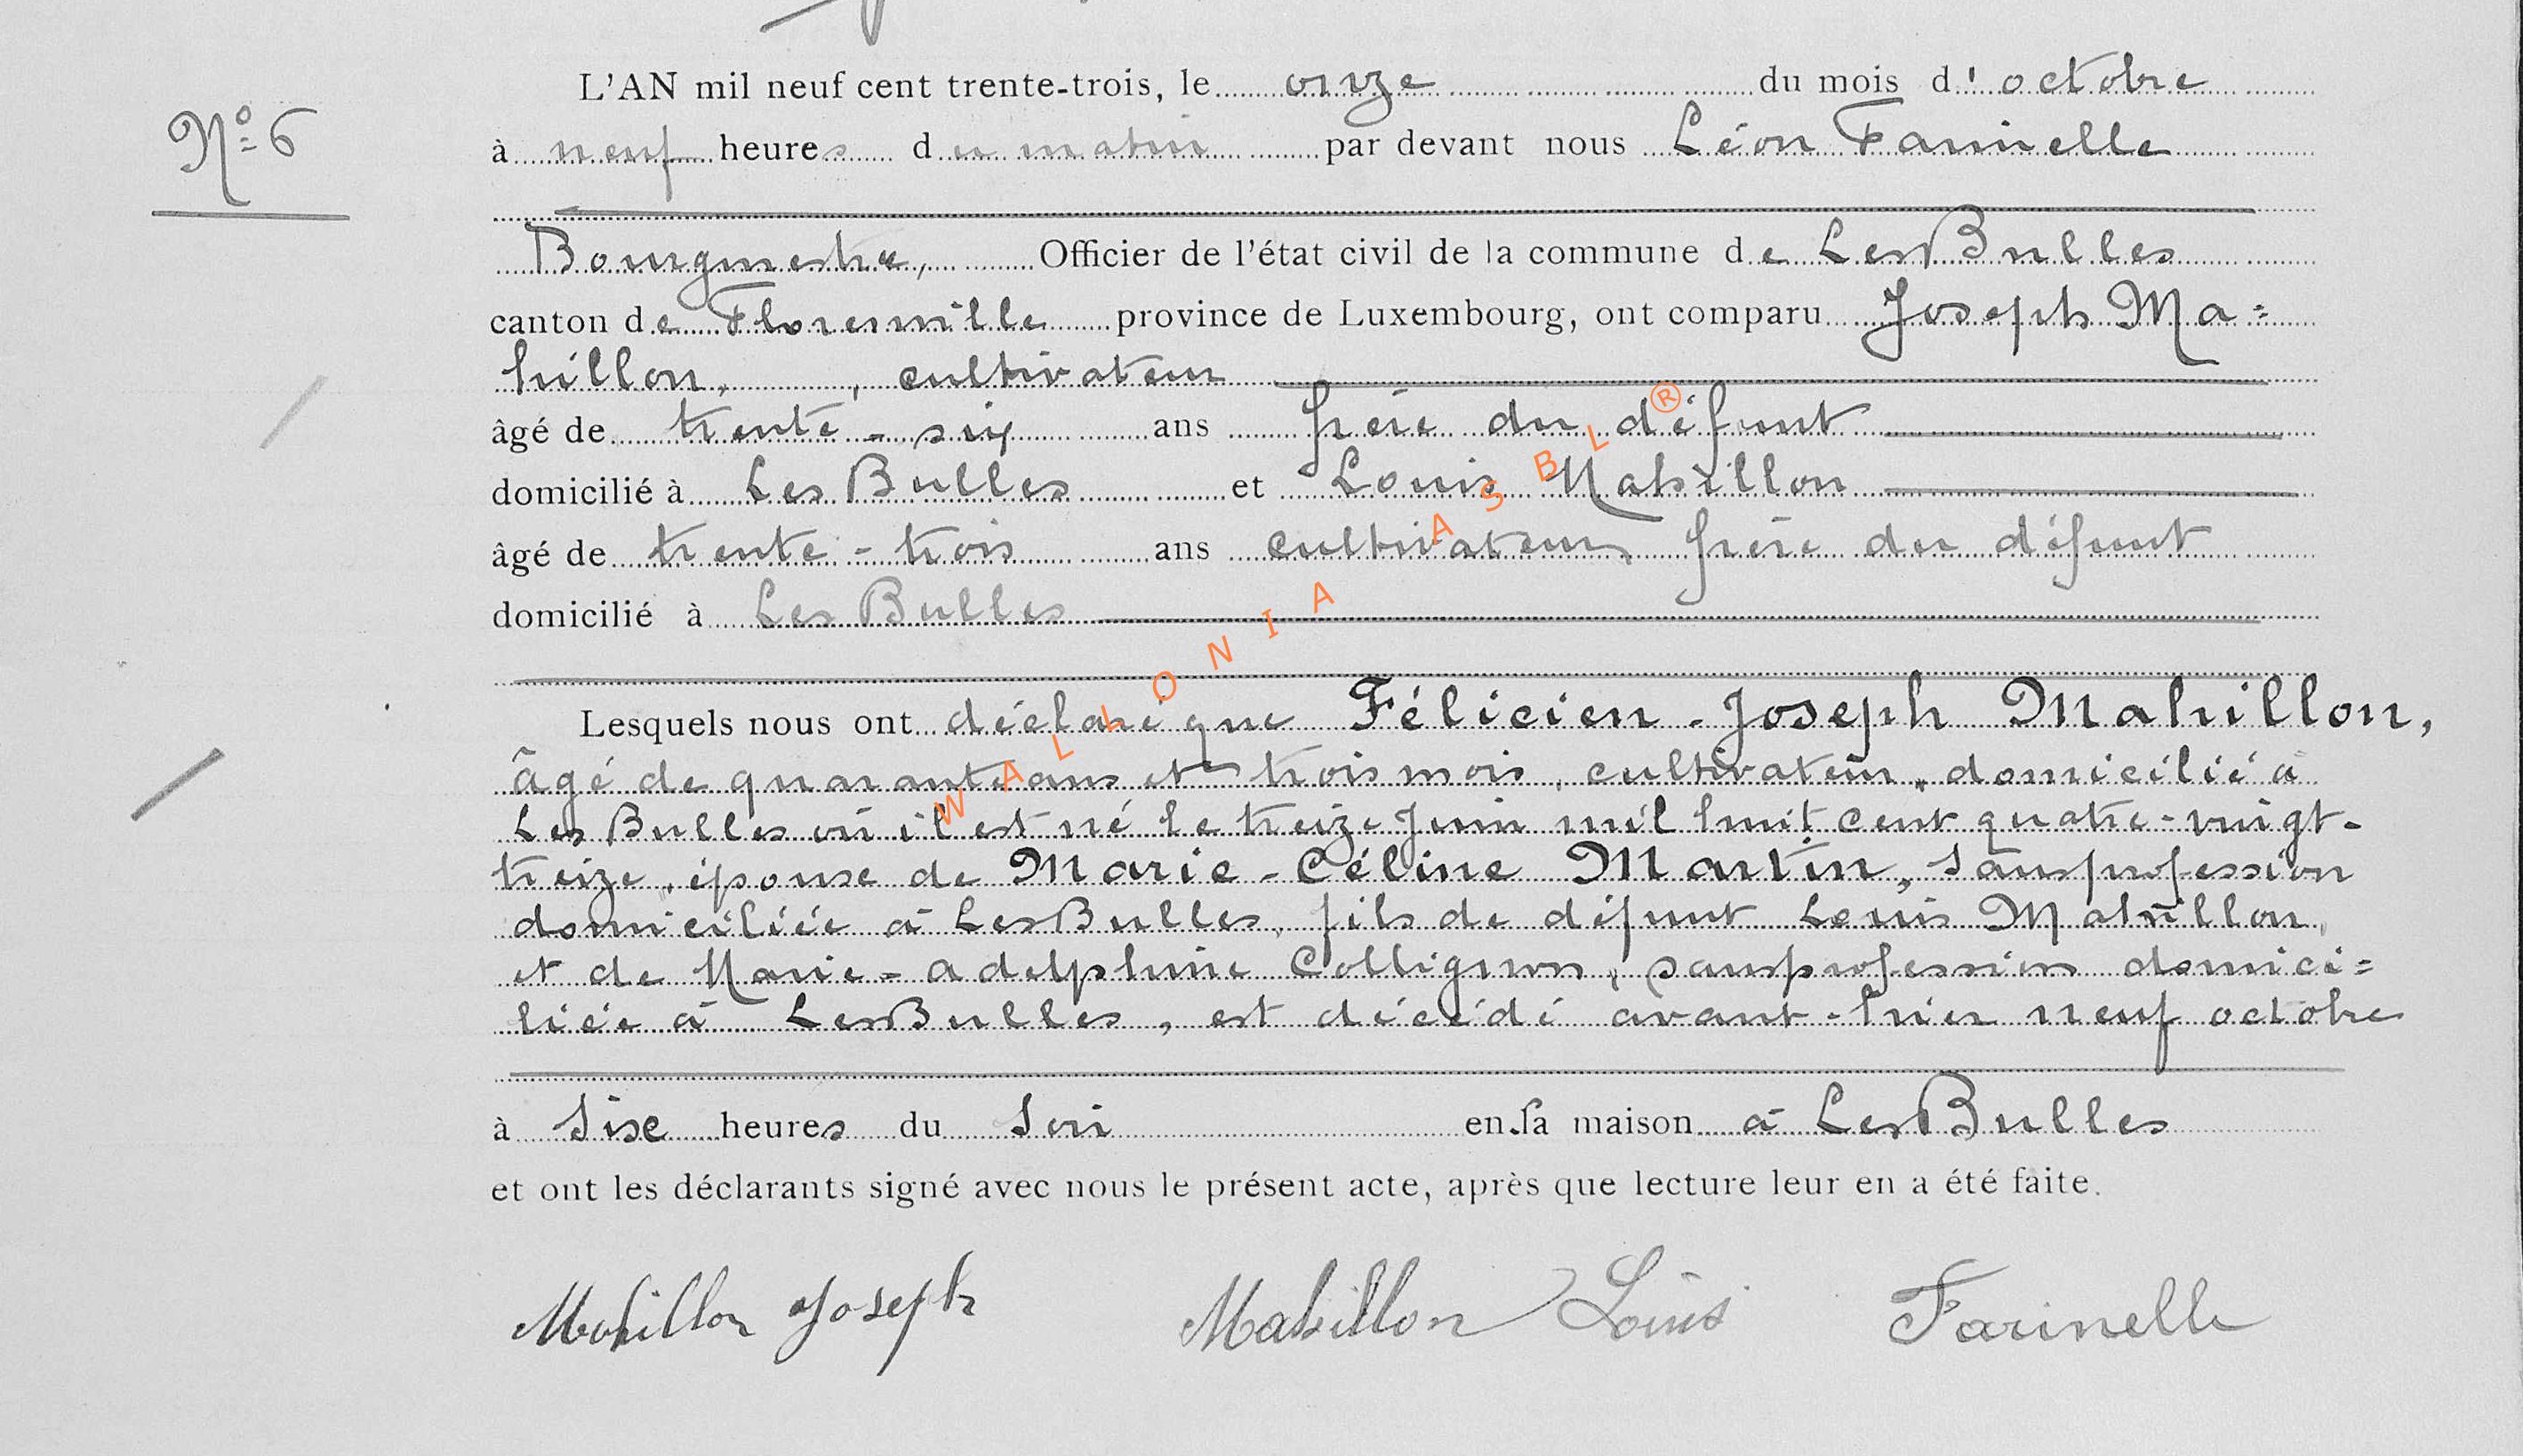 N° 6
L'AN mil neuf cent trente-trois, le onze du mois d'octobre
à neuf heures du matin par devant nous Léon Farinelle
Bourgmestre, Officier de l'état civil de la commune de Les Bulles
canton de Florenville province de Luxembourg, ont comparu Joseph Ma=
hillon, , cultivateur
âgé de trente-six ans frère du défunt
domicilié à Les Bulles et Louis Mahillon
âgé de trente-trois ans cultivateur, frère du défunt
domicilié à Les Bulles
Lesquels nous ont déclaré que Félicien-Joseph Mahillon,
âgé de quarante ans et trois mois, cultivateur, domicilié à
Les Bulles où il est né le treize Juin mil huit cent quatre-vingt-
treize, épouse de Marie-Céline Martin, sans profession
domiciliée à Les Bulles, fils de défunt Louis Mahillon,
et de Marie=Adelphine Collignon, sans profession domici=
liée à Les Bulles, est décédé avant-hier neuf octobre
à sise heures du soir en sa maison à Les Bulles
et ont les déclarants signé avec nous le présent acte, après que lecture leur en a été faite.
Mahillon Joseph Mahillon Louis Farinelle
WALLONIA ASBL ®